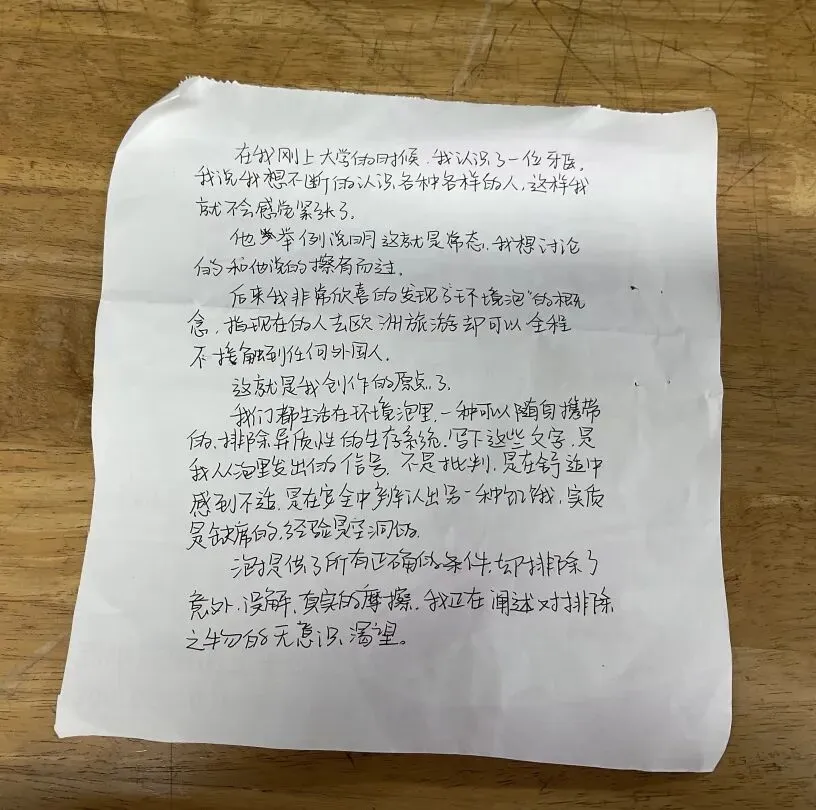 在我刚上大学的时候，我认识了一位牙医。
我说我想不断的认识各种各样的人，这样我
就不会感觉紧张了。
他举例说明这就是常态，我想讨论
的和他说的擦肩而过。
后来我非常欣喜的发现了"环境泡"的概
念，指现在的人去欧洲旅游却可以全程
不接触到任何外国人。
这就是我创作的原点了。
我们都生活在环境泡里，一种可以随身携带
的、排除异质性的生存系统。写下这些文字，是
我从泡里发出的信号。不是批判，是在舒适中
感到不适，是在安全中辨认出另一种饥饿，实质
是缺席的，经验是空洞的。
泡提供了所有正确的条件，却排除了
意外、误解、真实的摩擦。我正在阐述对排除
之物的无意识渴望。